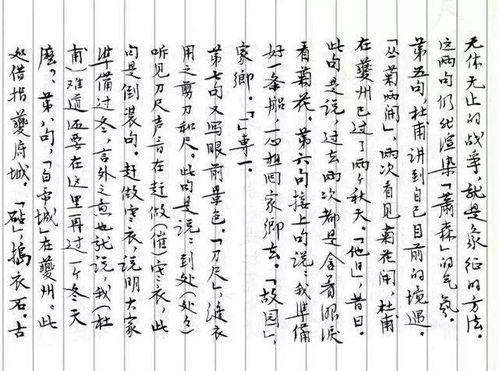 无休无止的战争,就是象征的方法。
这两句仍然渲染「萧森」的气氛。
第五句,杜甫讲到自己目前的境遇。
「丛菊两开」,两次看见菊花开,杜甫
在夔州已过了两个秋天。「他日」,昔日。
此句是说,过去两次都是含着眼泪
看菊花。第六句接上句说:我準備
好一条船,一心想回家乡去。「故园」,
家鄉。「一」,專一。
第七句又写眼前景色。「刀尺」,縫衣
用之剪刀和尺。此句是说:到处(处々)
听见刀尺声音在赶做(催)寒衣,此
句是倒装句。赶做寒衣,说明大家
準備过冬,言外之意也就说,我(杜
甫)难道还要在这里再过一个冬天
麼?第八句,「白帝城」在夔州。此
处借指夔府城。「砧」,搗衣石。古